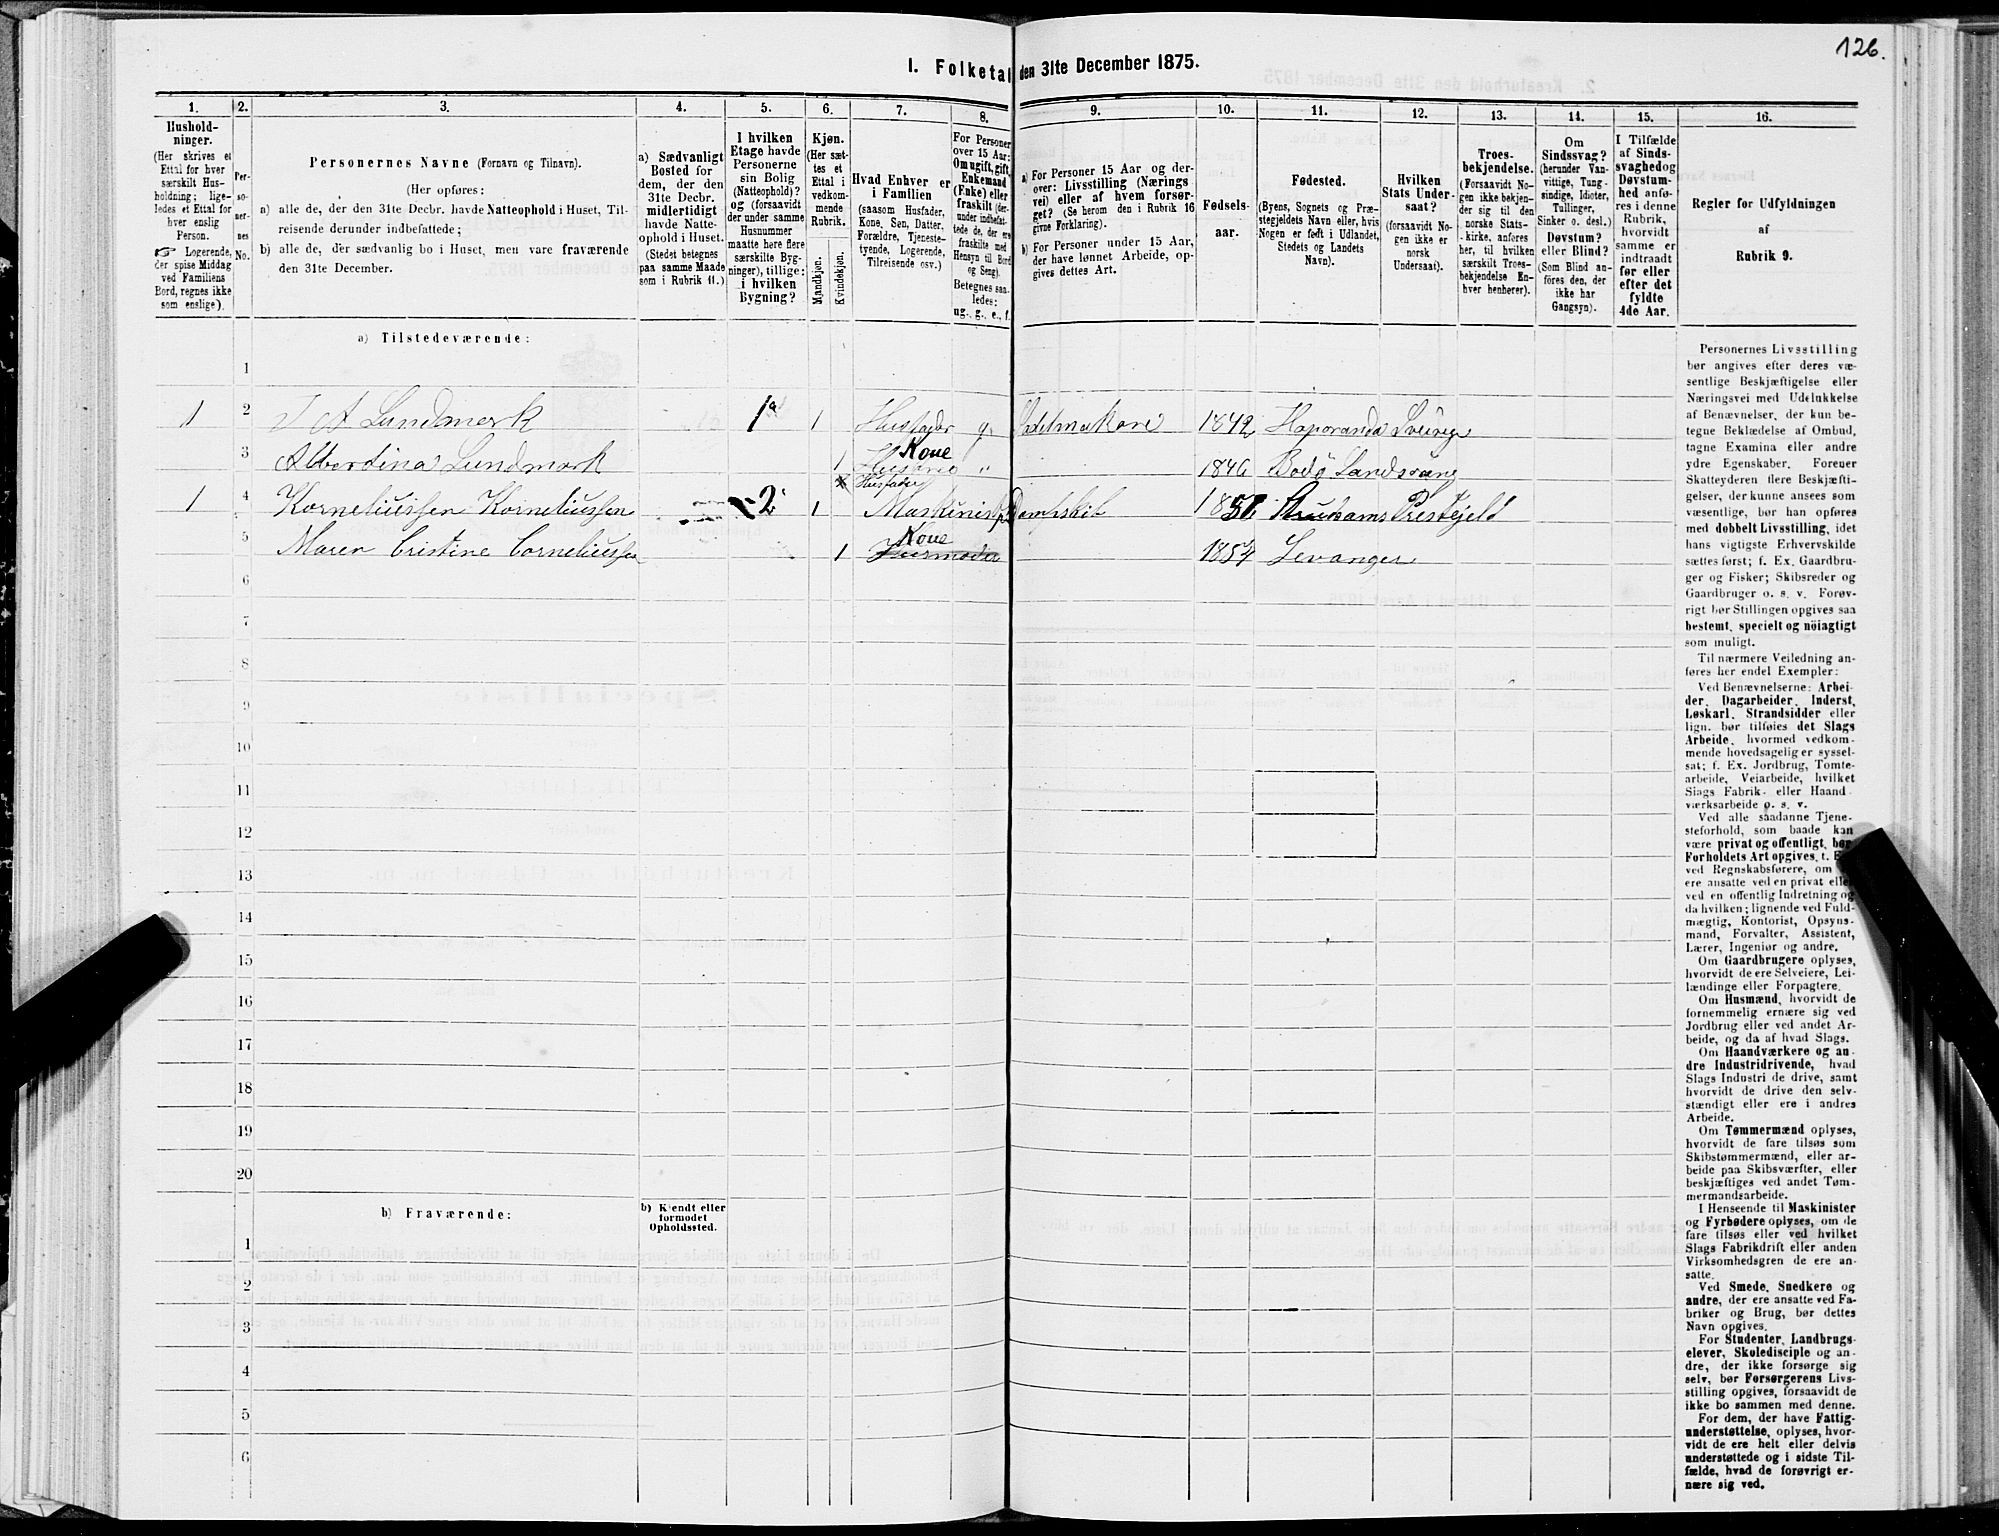 126.
I. Folketal den 31te December 1875.
1.
Hushold-
ninger.
(Her skrives et
Ettal for hver
særskilt Hus-
holdning; lige-
ledes et Ettal for
hver enslig
Person.
☞ Logerende,
der spise Middag
ved Familiens
Bord, regnes ikke
som enslige).
2.
Per-
so-
ner-
nes
No.
3.
Personernes Navne (Fornavn og Tilnavn).
(Her opføres:
a) alle de, der den 31te Decbr. havde Natteophold i Huset, Til-
reisende derunder indbefattede;
b) alle de, der sædvanlig bo i Huset, men vare fraværende
den 31te December.
4.
a) Sædvanligt
Bosted for
dem, der den
31te Decbr.
midlertidigt
havde Natte-
ophold i Huset.
(Stedet betegnes
paa samme Maade
som i Rubrik 11.)
5.
I hvilken
Etage havde
Personerne
sin Bolig
(Natteophold)?
og (forsaavidt
der under samme
Husnummer
maatte høre flere
særskilte Byg-
ninger), tillige:
i hvilken
Bygning?
6.
Kjøn.
(Her sæt-
tes et
Ettal i
vedkom-
mende
Rubrik.
Mandkjøn.
Kvindekjøn.
7.
Hvad Enhver er
i Familien
(saasom Husfader,
Kone, Søn, Datter,
Forældre, Tjeneste-
tyende, Logerende,
Tilreisende osv.)
8.
For Personer
over 15 Aar:
Om ugift, gift,
Enkemand
(Enke) eller
fraskilt (der-
under indbefat-
tede de, der ere
fraskilte med
Hensyn til Bord
og Seng).
Betegnes saa-
ledes:
ug., g., e., f.
9.
a) For Personer 15 Aar og der-
over: Livsstilling (Nærings
vei) eller af hvem forsør-
get? (Se herom den i Rubrik 16
givne Forklaring).
b) For Personer under 15 Aar,
der have lønnet Arbeide, op-
gives dettes Art.
10.
Fødsels-
aar.
11.
Fødested.
(Byens, Sognets og Præ-
stegjeldets Navn eller, hvis
Nogen er født i Udlandet,
Stedets og Landets
Navn).
12.
Hvilken
Stats Under-
saat?
(forsaavidt No-
gen ikke er
norsk
Undersaat).
13.
Troes-
bekjendelse.
(Forsaavidt No-
gen ikke bekjen-
der sig til den
norske Stats-
kirke, anføres
her, til hvilken
særskilt Troes-
bekjendelse En-
hver henhører).
14.
Om
Sindssvag?
(herunder Van-
vittige, Tung-
sindige, Idioter,
Tullinger,
Sinker o. desl.)
Døvstum?
eller Blind?
(Som Blind an-
føres den, der
ikke har
Gangsyn).
15.
I Tilfælde
af Sinds-
svaghed og
Døvstum-
hed anfø-
res i denne
Rubrik,
hvorvidt
samme er
indtraadt
før eller
efter det
fyldte
4de Aar.
16.
Regler for Udfyldningen
af
Rubrik 9.
a) Tilstedeværende:
1
1 2 J A Lundmerk 1a 1 Husfader g. 1842 Haporanda Sverige
3 Albertina Lundmark 1 Kone Hustrue " 1846 Bodø Landsogn
Husfader
1 4 Korneliussen Korneliussen 2 1 Maskinist paa Dampskib Prestejeld
5 Maren Cristine Corneliussen 1 Kone Husmoder 1854 Levanger
6
7
8
9
10
11
12
13
14
15
16
17
18
19
20
b) Fraværende:
b) Kjendt eller
formodet
Opholdssted.
1
2
3
4
5
6
Personernes Livsstilling
bør angives efter deres væ-
sentlige Beskjæftigelse eller
Næringsvei med Udelukkelse
af Benævnelser, der kun be-
tegne Beklædelse af Ombud,
tagne Examina eller andre
ydre Egenskaber. Forener
Skatteyderen flere Beskjæfti-
gelser, der kunne ansees som
væsentlige, bør han opføres
med dobbelt Livsstilling, idet
hans vigtigste Erhvervskilde
sættes først; f. Ex. Gaardbru-
ger og Fisker; Skibsreder og
Gaardbruger o. s. v. Forøv-
rigt bør Stillingen opgives saa
bestemt, specielt og nøiagtigt
som muligt.
Til nærmere Veiledning an-
føres her endel Exempler:
Ved Benævnelserne: Arbei-
der, Dagarbeider, Inderst,
Løskarl, Strandsidder eller
lign. bør tilføies det Slags
Arbeide, hvormed vedkom-
mende hovedsagelig er syssel-
sat; f. Ex. Jordbrug, Tomte-
arbeide, Veiarbeide, hvilket
Slags Fabrik- eller Haand-
værksarbeide o. s. v.
Ved alle saadanne Tjene-
steforhold, som baade kan
være privat og offentligt, bør
Forholdets Art opgives, t. E
ved Regnskabsførere, om
ere ansatte ved en privat elle
ved en offentlig Indretning og
da hvilken; lignende ved Fuld-
mægtig, Kontorist, Opsyns-
mand, Forvalter, Assistent,
Lærer, Ingeniør og andre.
Om Gaardbrugere oplyses,
hvorvidt de ere Selveiere, Lei-
lændinge eller Forpagtere.
Om Husmænd, hvorvidt de
fornemmelig ernære sig ved
Jordbrug eller ved andet Ar-
beide, og da af hvad Slags.
Om Haandværkere og an-
dre Industridrivende, hvad
Slags Industri de drive, samt
hvorvidt de drive den selv-
stændigt eller ere i andres
Arbeide.
Om Tømmermænd oplyses,
hvorvidt de fare tilsøs som
Skibstømmermænd, eller ar-
beide paa Skibsværfter, eller
beskjæftiges ved andet Tøm-
mermandsarbeide.
I Henseende til Maskinister
og Fyrbødere oplyses, om de
fare tilsøs eller ved hvilket
Slags Fabrikdrift eller anden
Virksomhedsgren de ere an-
satte.
Ved Smede, Snedkere og
andre, der ere ansatte ved Fa-
briker og Brug, bør dettes
Navn opgives.
For Studenter, Landbrugs-
elever, Skoledisciple og an-
dre, der ikke forsørge sig
selv, bør Forsørgerens Livs-
stilling opgives, forsaavidt de
ikke bo sammen med denne.
For dem, der have Fattig-
understøttelse, oplyses, hvor-
vidt de ere helt eller delvis
understøttede og i sidste Til-
fælde, hvad de forøvrigt er-
nære sig ved.